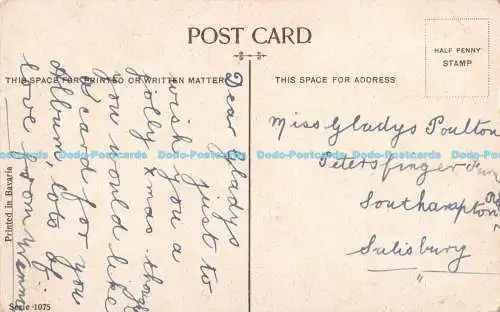 POST CARD
HALF PENNY
STAMP
THIS SPACE FOR PRINTED OR WRITTEN MATTER
THIS SPACE FOR ADDRESS
Dear Gladys
just to
wish you a
jolly Xmas. though
you would like
a card for you
Album, lots of
love from
Miss Gladys Poulton
Petersfinger
Southampton Rd
Salisbury
Printed in Bavaria
Serie 1075
Dodo-Postcards Dodo-Postcards Dodo-Postcards Dodo-Postcards